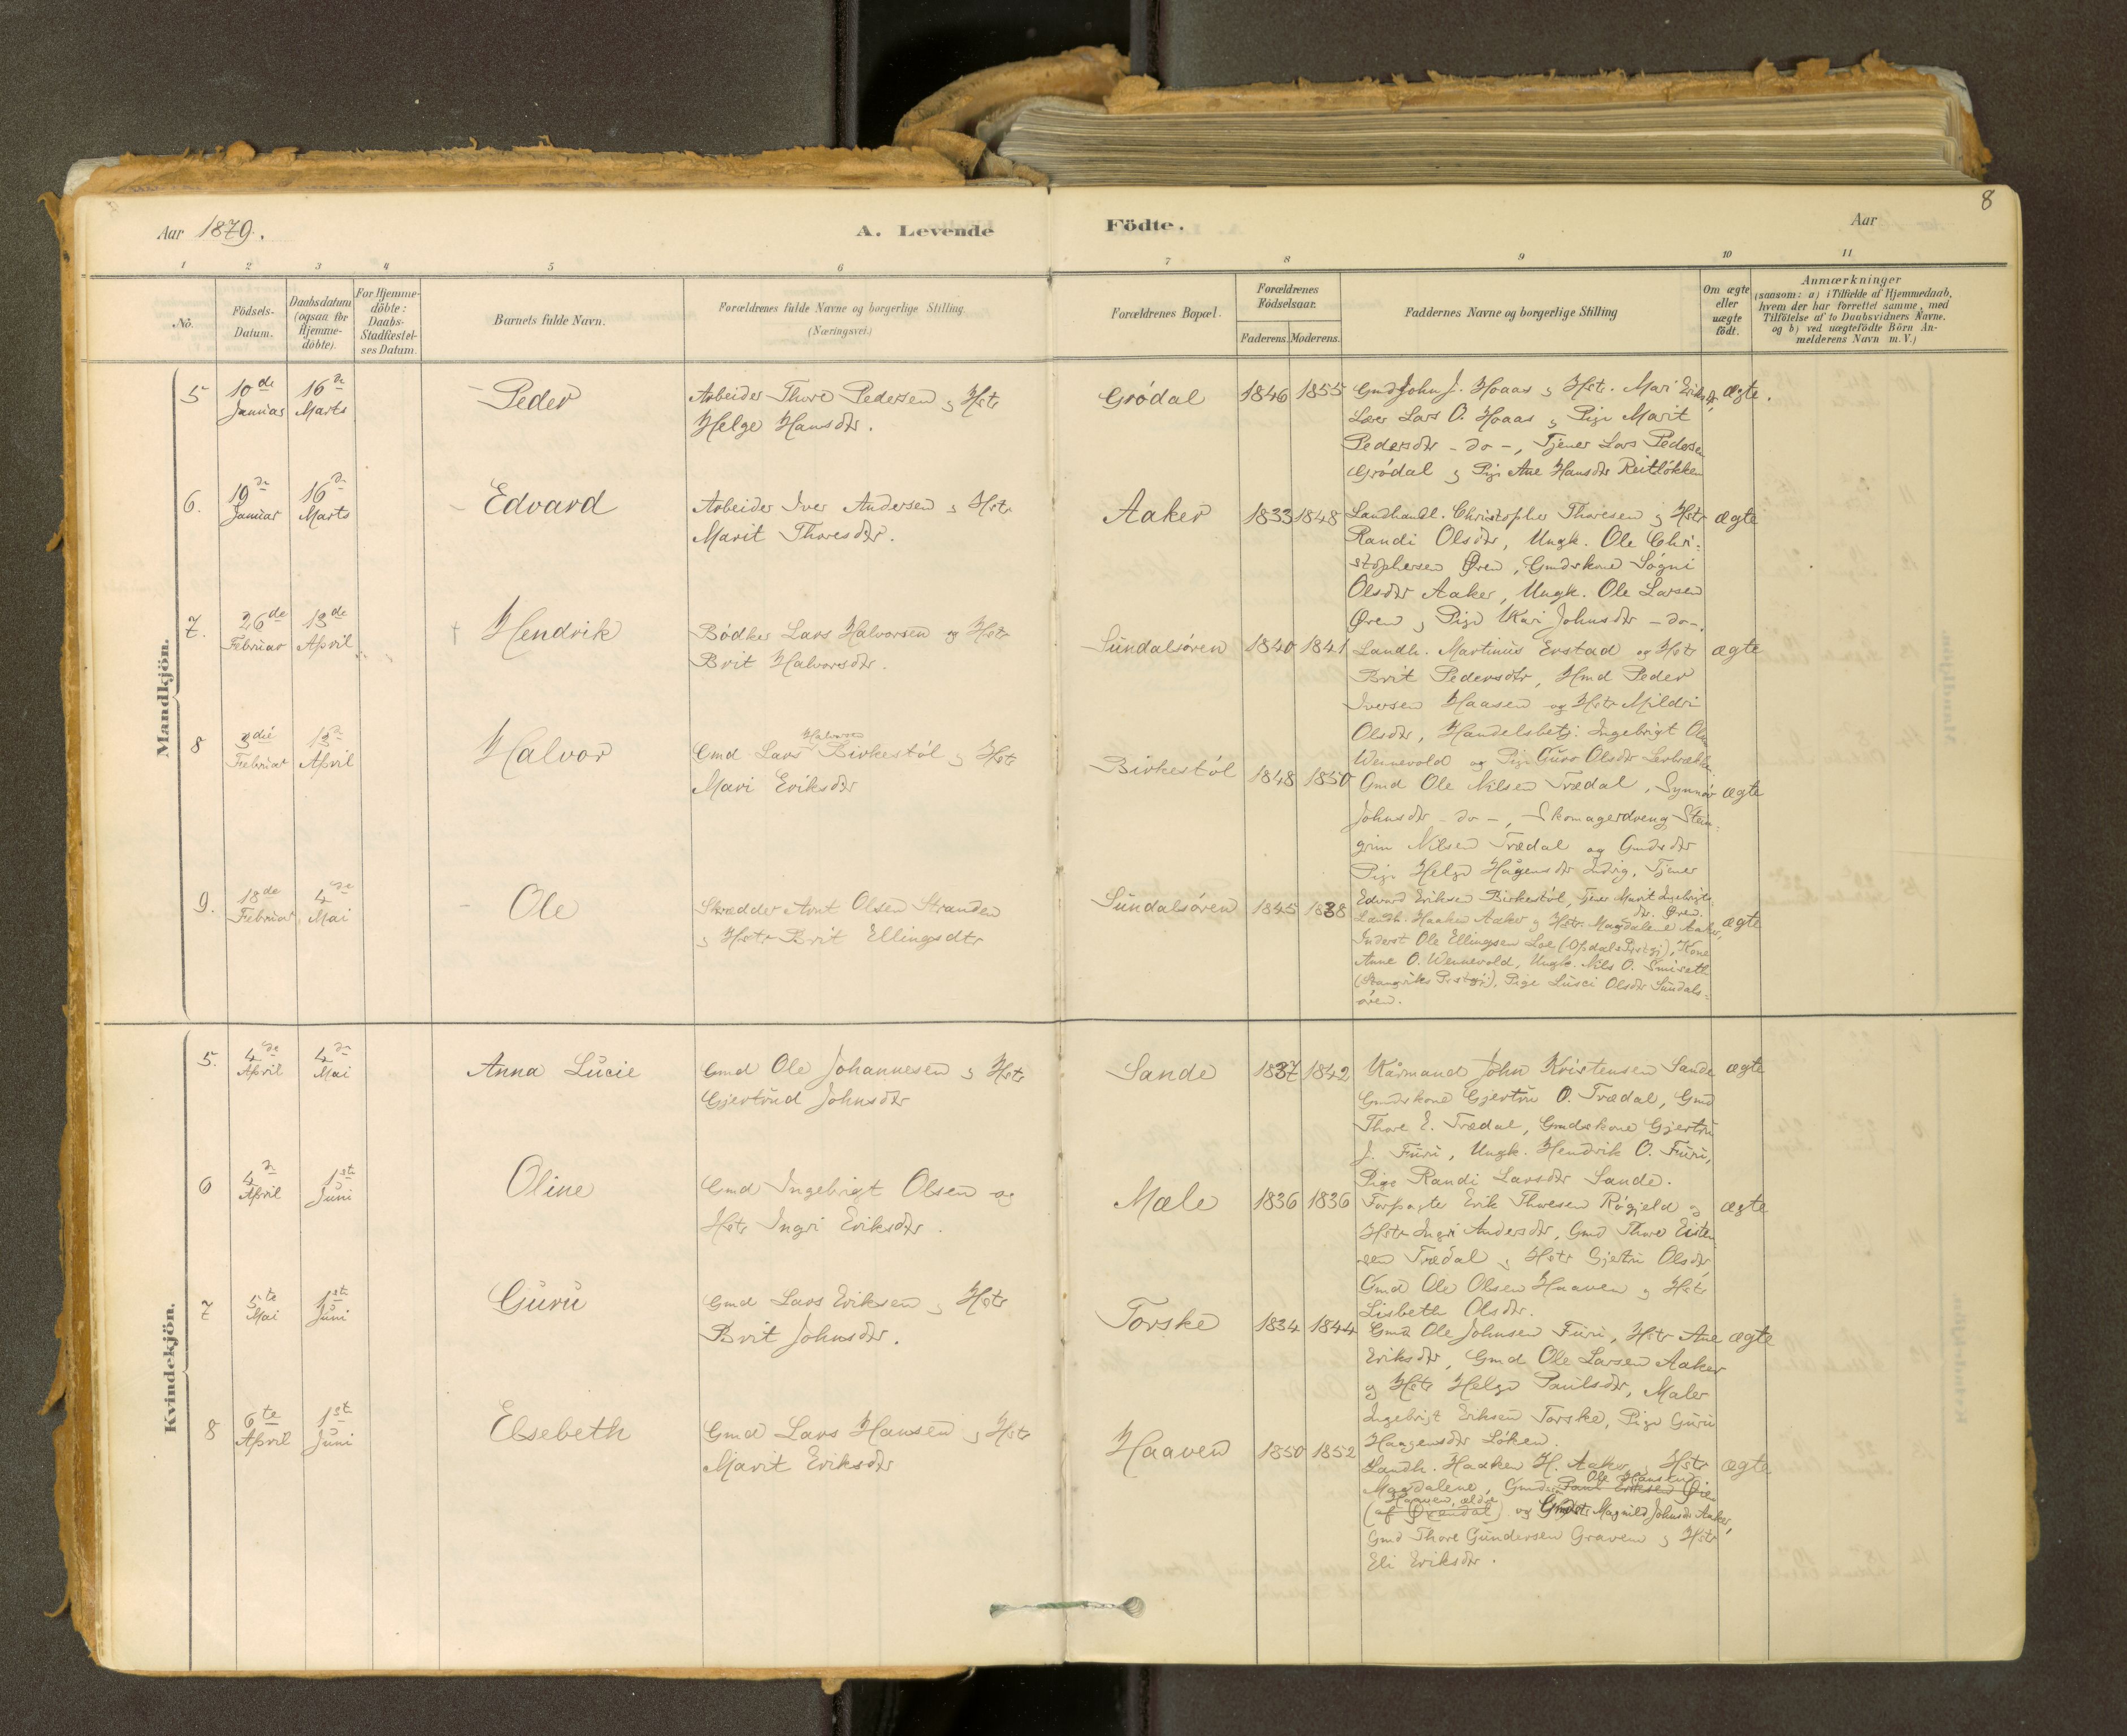 8
Aar 1879.
A. Levende
Födte.
Aar
1 2 3 4 5 6 7 8 9 10 11
No.
Födsels-
Datum.
Daabsdatum
(ogsaa for
Hjemme-
döbte).
For Hjemme-
döbte:
Daabs-
Stadfæstel-
ses Datum.
Barnets fulde Navn.
Forældrenes fulde Navne og borgerlige Stilling
(Næringsvei.)
Forældrenes Bopæl.
Forældrenes
Födselsaar.
Faderens. Moderens.
Faddernes Navne og borgerlige Stilling
Om ægte
eller
uægte
födt.
Anmærkninger
(saasom: a) i Tilfælde af Hjemmedaab,
hvem der har forrettet samme, med
Tilföielse af to Daabsvidners Navne.
og b) ved uægtefödte Börn An-
melderens Navn m. V.)
Mandkjön.
5 10de Januar 16de Marts
Peder
Arbeider Thore Pedersen og Hstr
Helge Hansdtr.
Grödal 1846 1855
Gmd John J. Hoaas og Hstr. Mari Eriksdtr,
Lars O. Hoaas og Pige Marit
Pedersdtr -do-, Tjener Lars Pedersen
Grödal og Pige Ane Hansdtr Reitlökken
ægte.
6. 19de Januar 16de Marts
Edvard
Arbeider Iver Andersen og Hstr
Marit Thoresdtr.
Aaker 1833 1848
Landhandl. Christopher Thoresen og Hstr
Randi Olsdtr, Ungk. Ole Chri-
stophersen Øren, Gmdskone Sögni
Olsdtr Aaker, Ungk. Ole Larsen
Øren og Pige Kari Johnsdtr -do-.
ægte
7. 26de Februar 13de April
† Hendrik
Bödker Lars Halvorsen og Hstr
Brit Halvorsdtr.
Sundalsören 1840 1841
Landh. Martinus Erstad og Hstr
Brit Pedersdtr, Hmd Peder
Iversen Haasen og Hstr Mildri
Olsdtr, Handelsbetj. Ingebrigt Olsen
Wennevold og Pige Guro Olsdtr
ægte
8 3die Februar 13de April
Halvor
Halvorsen
Gmd Lars Birkestöl og Hstr
Mari Eriksdtr
Birkestöl 1848 1850
Gmd Ole Nilsen Trædal, Synnöv
Johnsdtr -do-, Skomagerdreng Stein-
grim Nilsen Trædal og Gmdsdtr
Pige Helge Hågensdtr Indvig, Tjener
Edvard Eriksen Birkestöl, Tjener Marit Ingebrigts-
dtr. Øren.
ægte
9. 18de Februar 4de Mai
Ole
Skrædder Arnt Olsen Stranden
og Hstr Brit Ellingsdtr
Sundalsören 1845 1838
Landh. Haaken Aaker og Hstr. Magdalene Aaker,
Inderst Ole Ellingsen Loe (Opdals Prstgj), Kone
Anne O. Wennevold, Ungk. Nils O. Smiseth
(Stangviks Prstgj). Pige Lusci Olsdtr Sundals-
ören.
ægte
Kvindekjön.
5. 4de April 4de Mai
Anna Lucie
Gmd Ole Johannesen og Hstr
Gjertrud Johnsdtr
Sande 1837 1842
Kårmand John Kristensen Sande
Gmdskone Gjertru O. Trædal, Gmd
Thore E. Trædal, Gmdskone Gjertru
J. Furu, Ungk. Hendrik O. Furu,
Pige Randi Larsdtr Sande.
ægte
6 4de April 1ste Juni
Oline
Gmd Ingebrigt Olsen og
Hstr Ingri Eriksdtr.
Mæle 1836 1836
Forpagter Erik Thoresen Rögjeld og
Hstr Ingri Andersdtr, Gmd Thore Eisten-
sen Trædal og Hstr Gjertru Olsdtr
Gmd Ole Olsen Haaven og Hstr
Lisbeth Olsdtr.
ægte
7 5te Mai 1ste Juni
Guru
Gmd Lars Eriksen og Hstr
Brit Johnsdtr.
Torske 1834 1844
Gmd Ole Johnsen Furu, Hstr Ane
Eriksdtr, Gmd Ole Larsen Aaker
og Hstr Helge Paulsdtr, Maler
Ingebrigt Eriksen Torske, Pige Guru
Haagensdtr Löken.
ægte
8 6te April 1ste Juni
Elsebeth
Gmd Lars Hansen og Hstr
Marit Eriksdtr
Haaven 1850 1852
Landh. Haaken H. Aaker, Hstr
Magdalene, Gmd Paul Eriksen Øien
Ole Hansen
Haaven, ældre
(af Øxendal) og Magnild Johnsdtr Aaker,
Gmd Thore Gundersen Graven og Hstr
Eli Eriksdtr.
ægte